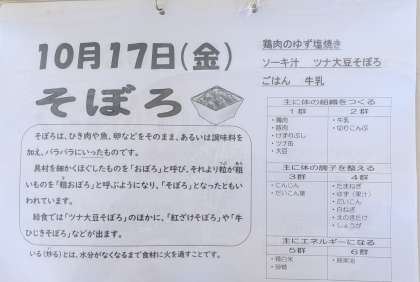 10月17日(金)
そぼろ
そぼろは、ひき肉や魚、卵などをそのまま、あるいは調味料を
加え、パラパラにいったものです。
具材を細かくほぐしたものを「おぼろ」と呼び、それより粒が粗
いものを「粗おぼろ」と呼ぶようになり、「そぼろ」となったともい
われています。
給食では「ツナ大豆そぼろ」のほかに、「紅ざけそぼろ」や「牛
ひじきそぼろ」などが出ます。
いる(炒る)とは、水分がなくなるまで食材に火を通すことです。
鶏肉のゆず塩焼き
ソーキ汁 ツナ大豆そぼろ
ごはん 牛乳
主に体の組織をつくる
1群 2群
・鶏肉 ・牛乳
・豚肉 ・切りこんぶ
・けずりぶし
・ツナ缶
・大豆
主に体の調子を整える
3群 4群
・にんじん ・たまねぎ
・だいこん葉 ・ゆず(果汁)
・だいこん
・白ねぎ
・えのきたけ
・しょうが
主にエネルギーになる
5群 6群
・精白米 ・米油
・砂糖